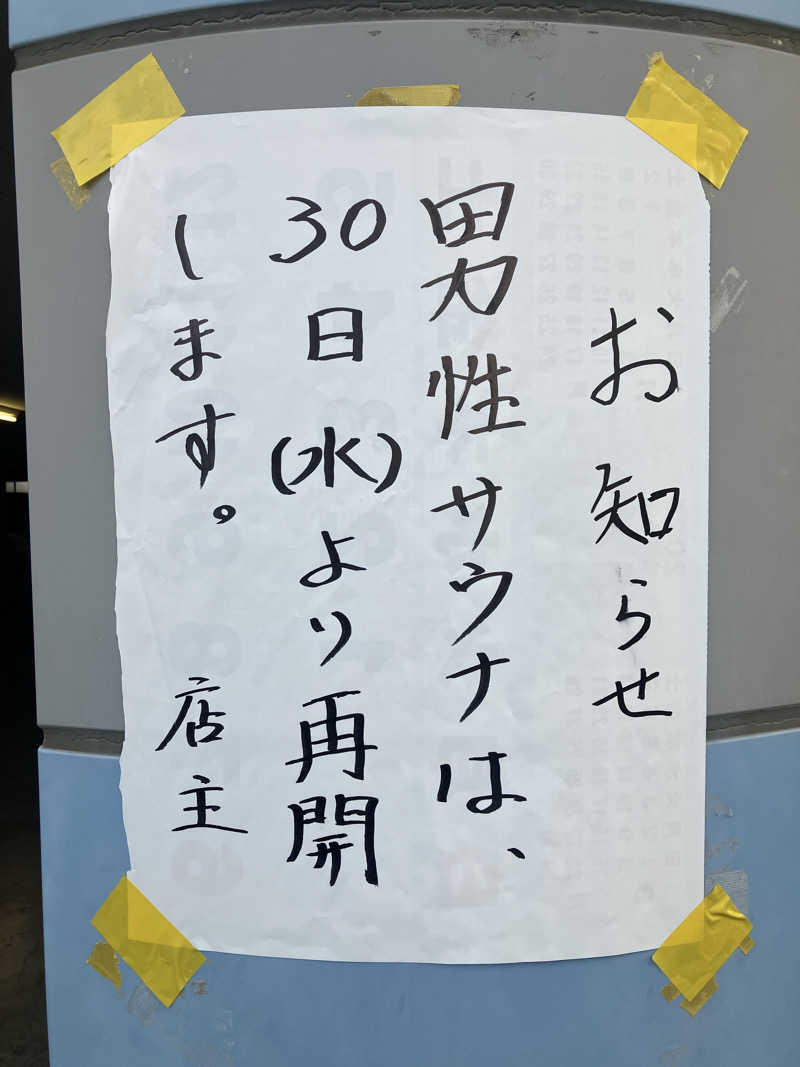 お知らせ
男性サウナは、
30日(水)より再開
します。 店主